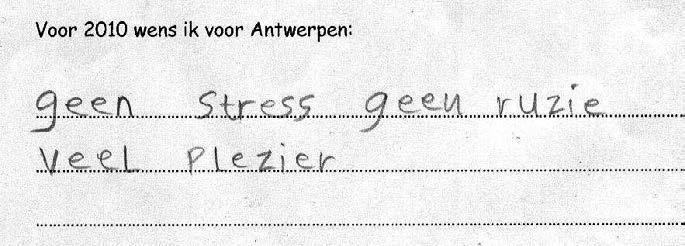 Voor 2010 wens ik voor Antwerpen:
geen stress geen ruzie
veel plezier